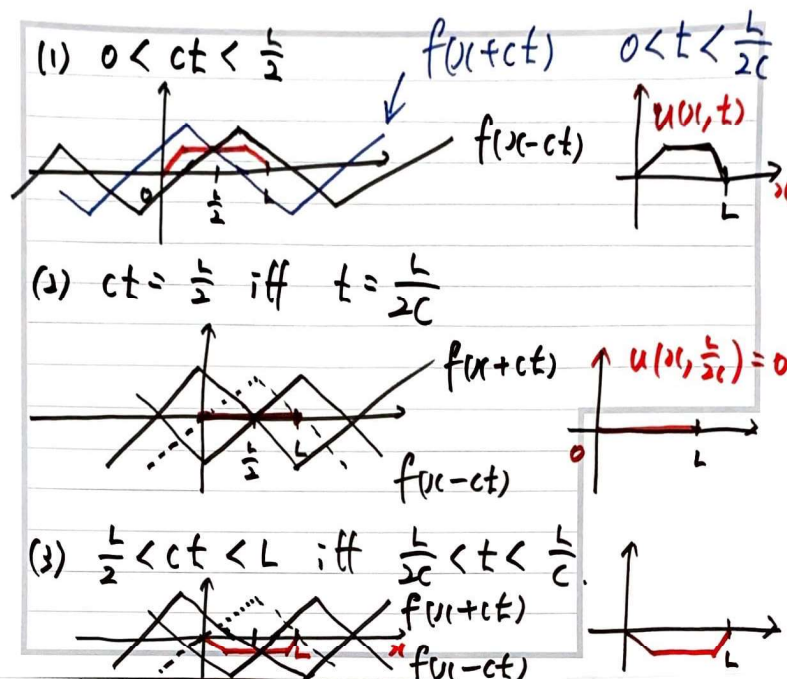 (1) 0 < ct < L/2
f(x+ct)
0 < t < L/2c
f(x-ct)
u(x,t)
0
L/2
L
L
x
(2) ct = L/2 iff t = L/2c
f(x+ct)
u(x, L/2c) = 0
L/2
L
0
L
f(x-ct)
(3) L/2 < ct < L iff L/2c < t < L/c.
f(x+ct)
L
x
L
f(x-ct)